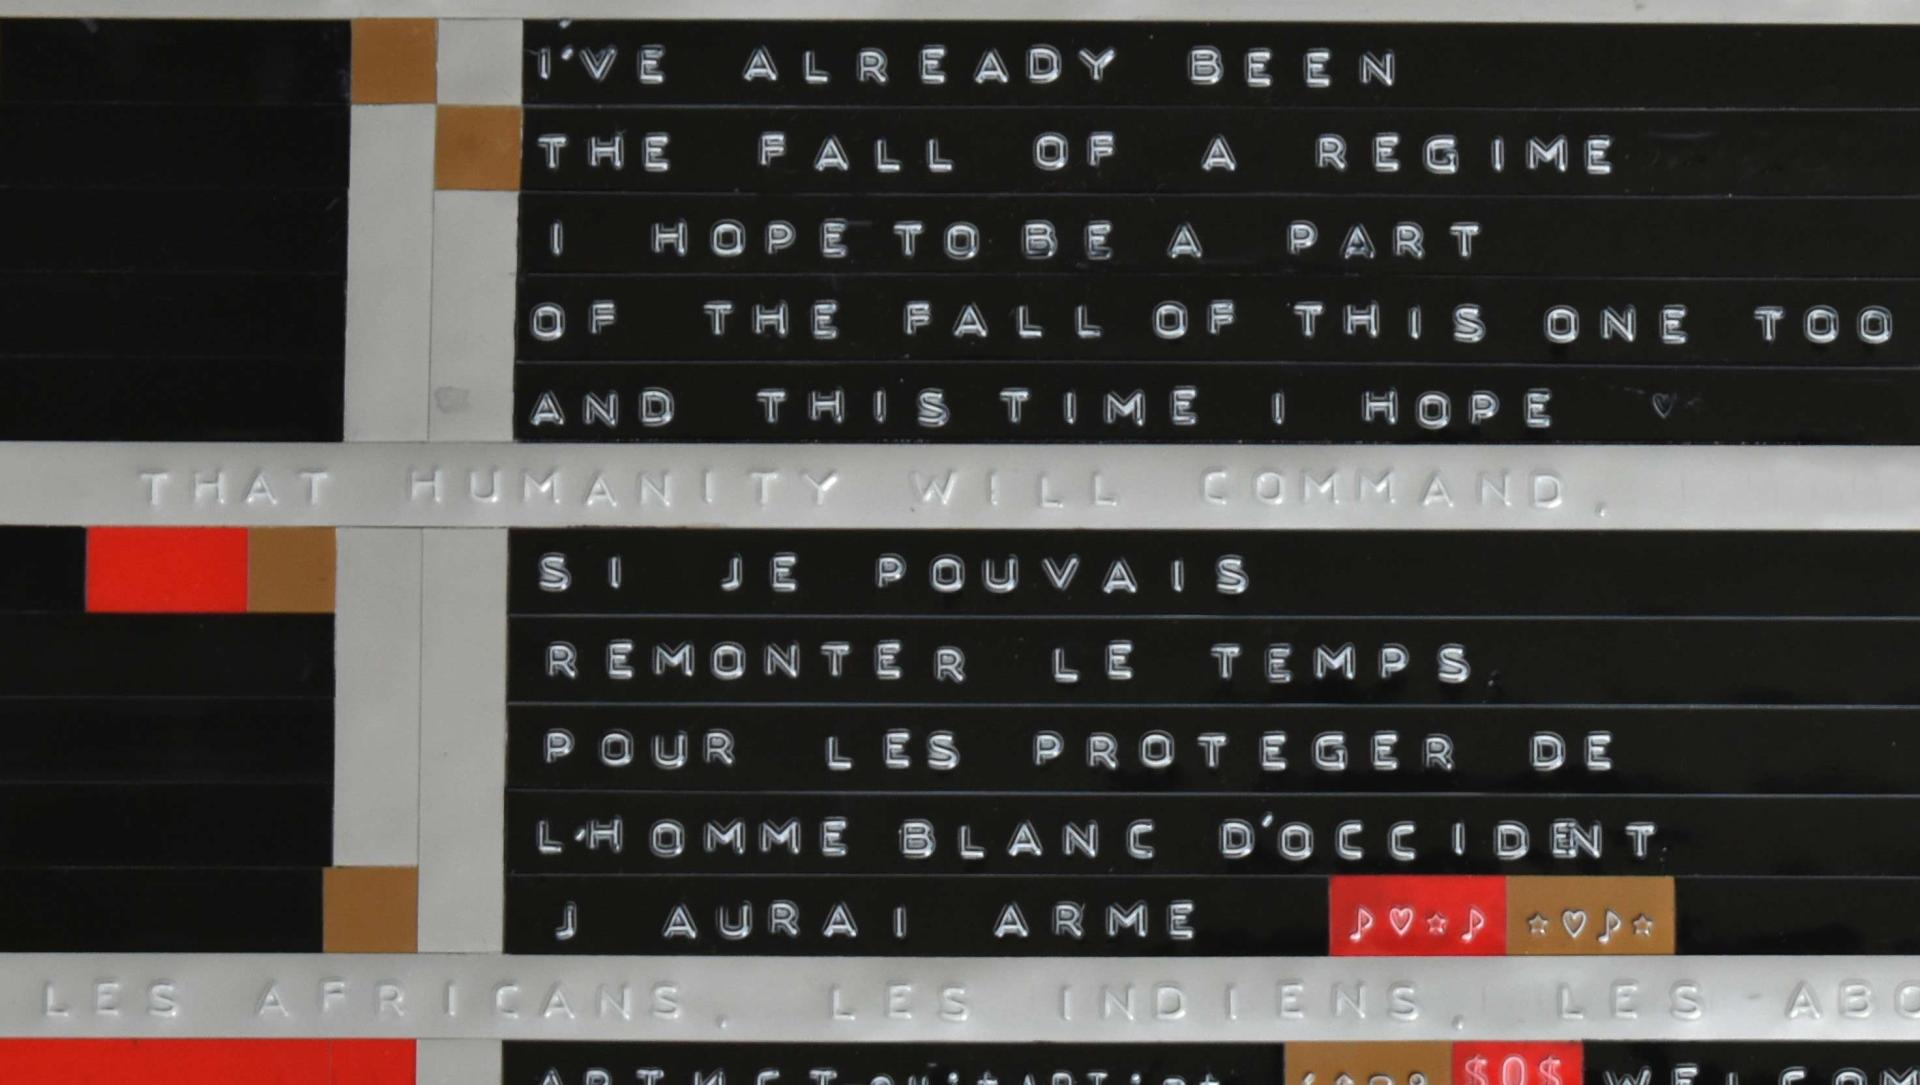 I'VE ALREADY BEEN
THE FALL OF A REGIME
I HOPE TO BE A PART
OF THE FALL OF THIS ONE TOO
AND THIS TIME I HOPE ♡
THAT HUMANITY WILL COMMAND.
SI JE POUVAIS
REMONTER LE TEMPS
POUR LES PROTEGER DE
L'HOMME BLANC D'OCCIDENT
J AURAI ARME ♪♡☆♪ ☆♡♪☆
LES AFRICANS, LES INDIENS, LES ABO
$O$